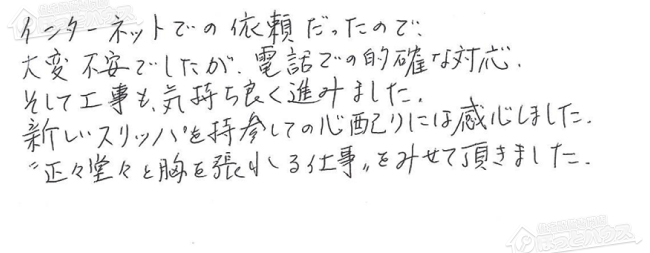 インターネットでの依頼だったので、
大変不安でしたが、電話での的確な対応、
そして工事も、気持ち良く進みました。
新しいスリッパを持参しての心配りには感心しました。
"正々堂々と胸を張れる仕事"をみせて頂きました。